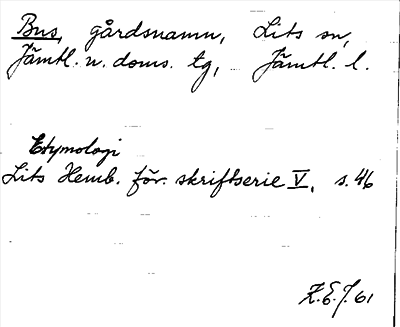 Bus, gårdsnamn, Lits sn,
Jämtl. n. doms. tg, Jämtl. l.
Etymologi
Lits Hemb. för. skriftserie V, s. 46
K.E.J. 61